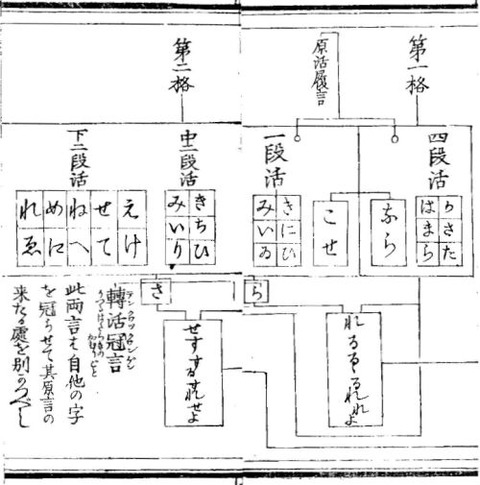 第一格
原活履言
四段活
かさた
はまら
なら
こせ
一段活
きにひ
みいゐ
ら
れるるるるれれよ
第二格
中二段活
きちひ
みいり
下二段活
えけ
せて
ねへ
めに
れゑ
さ
せすするすれせよ
轉活冠言
テンクワツクワンゲン
此両言は自他の字
を冠らせて其原言の
来たる處を別つべし